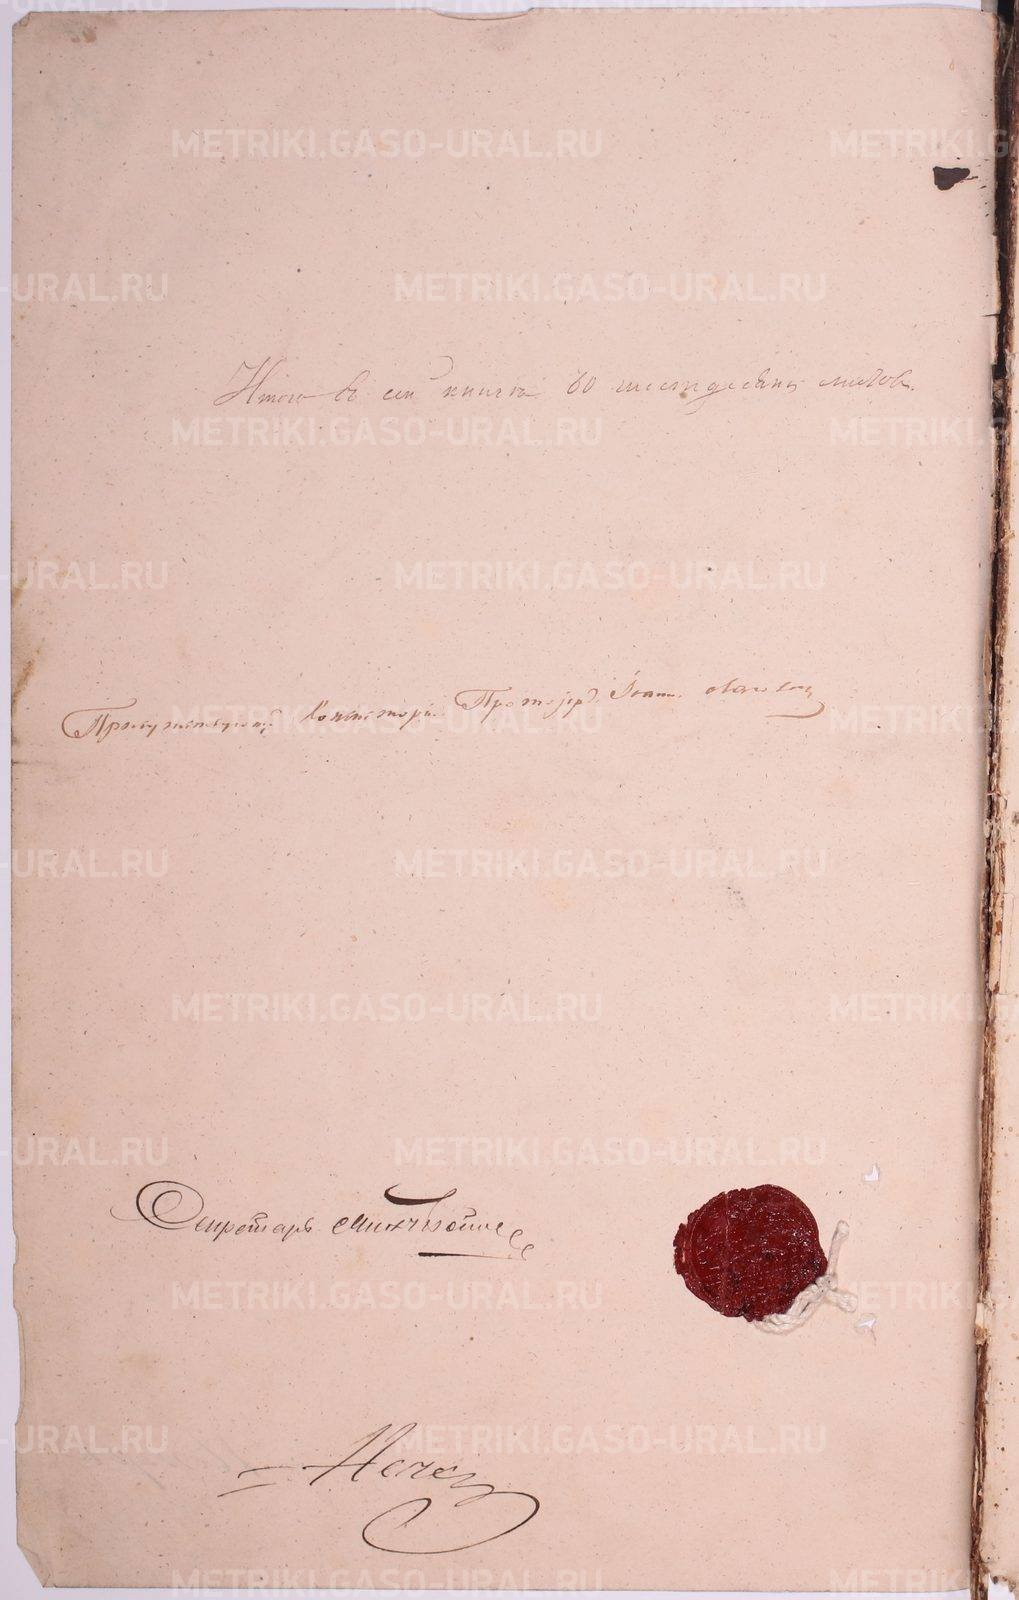 Итого въ сей книгѣ 60 шестьдесятъ листовъ.
Присутствующій Консисторіи Протоіерей Іоаннъ
Секретарь
METRIKI.GASO-URAL.RU